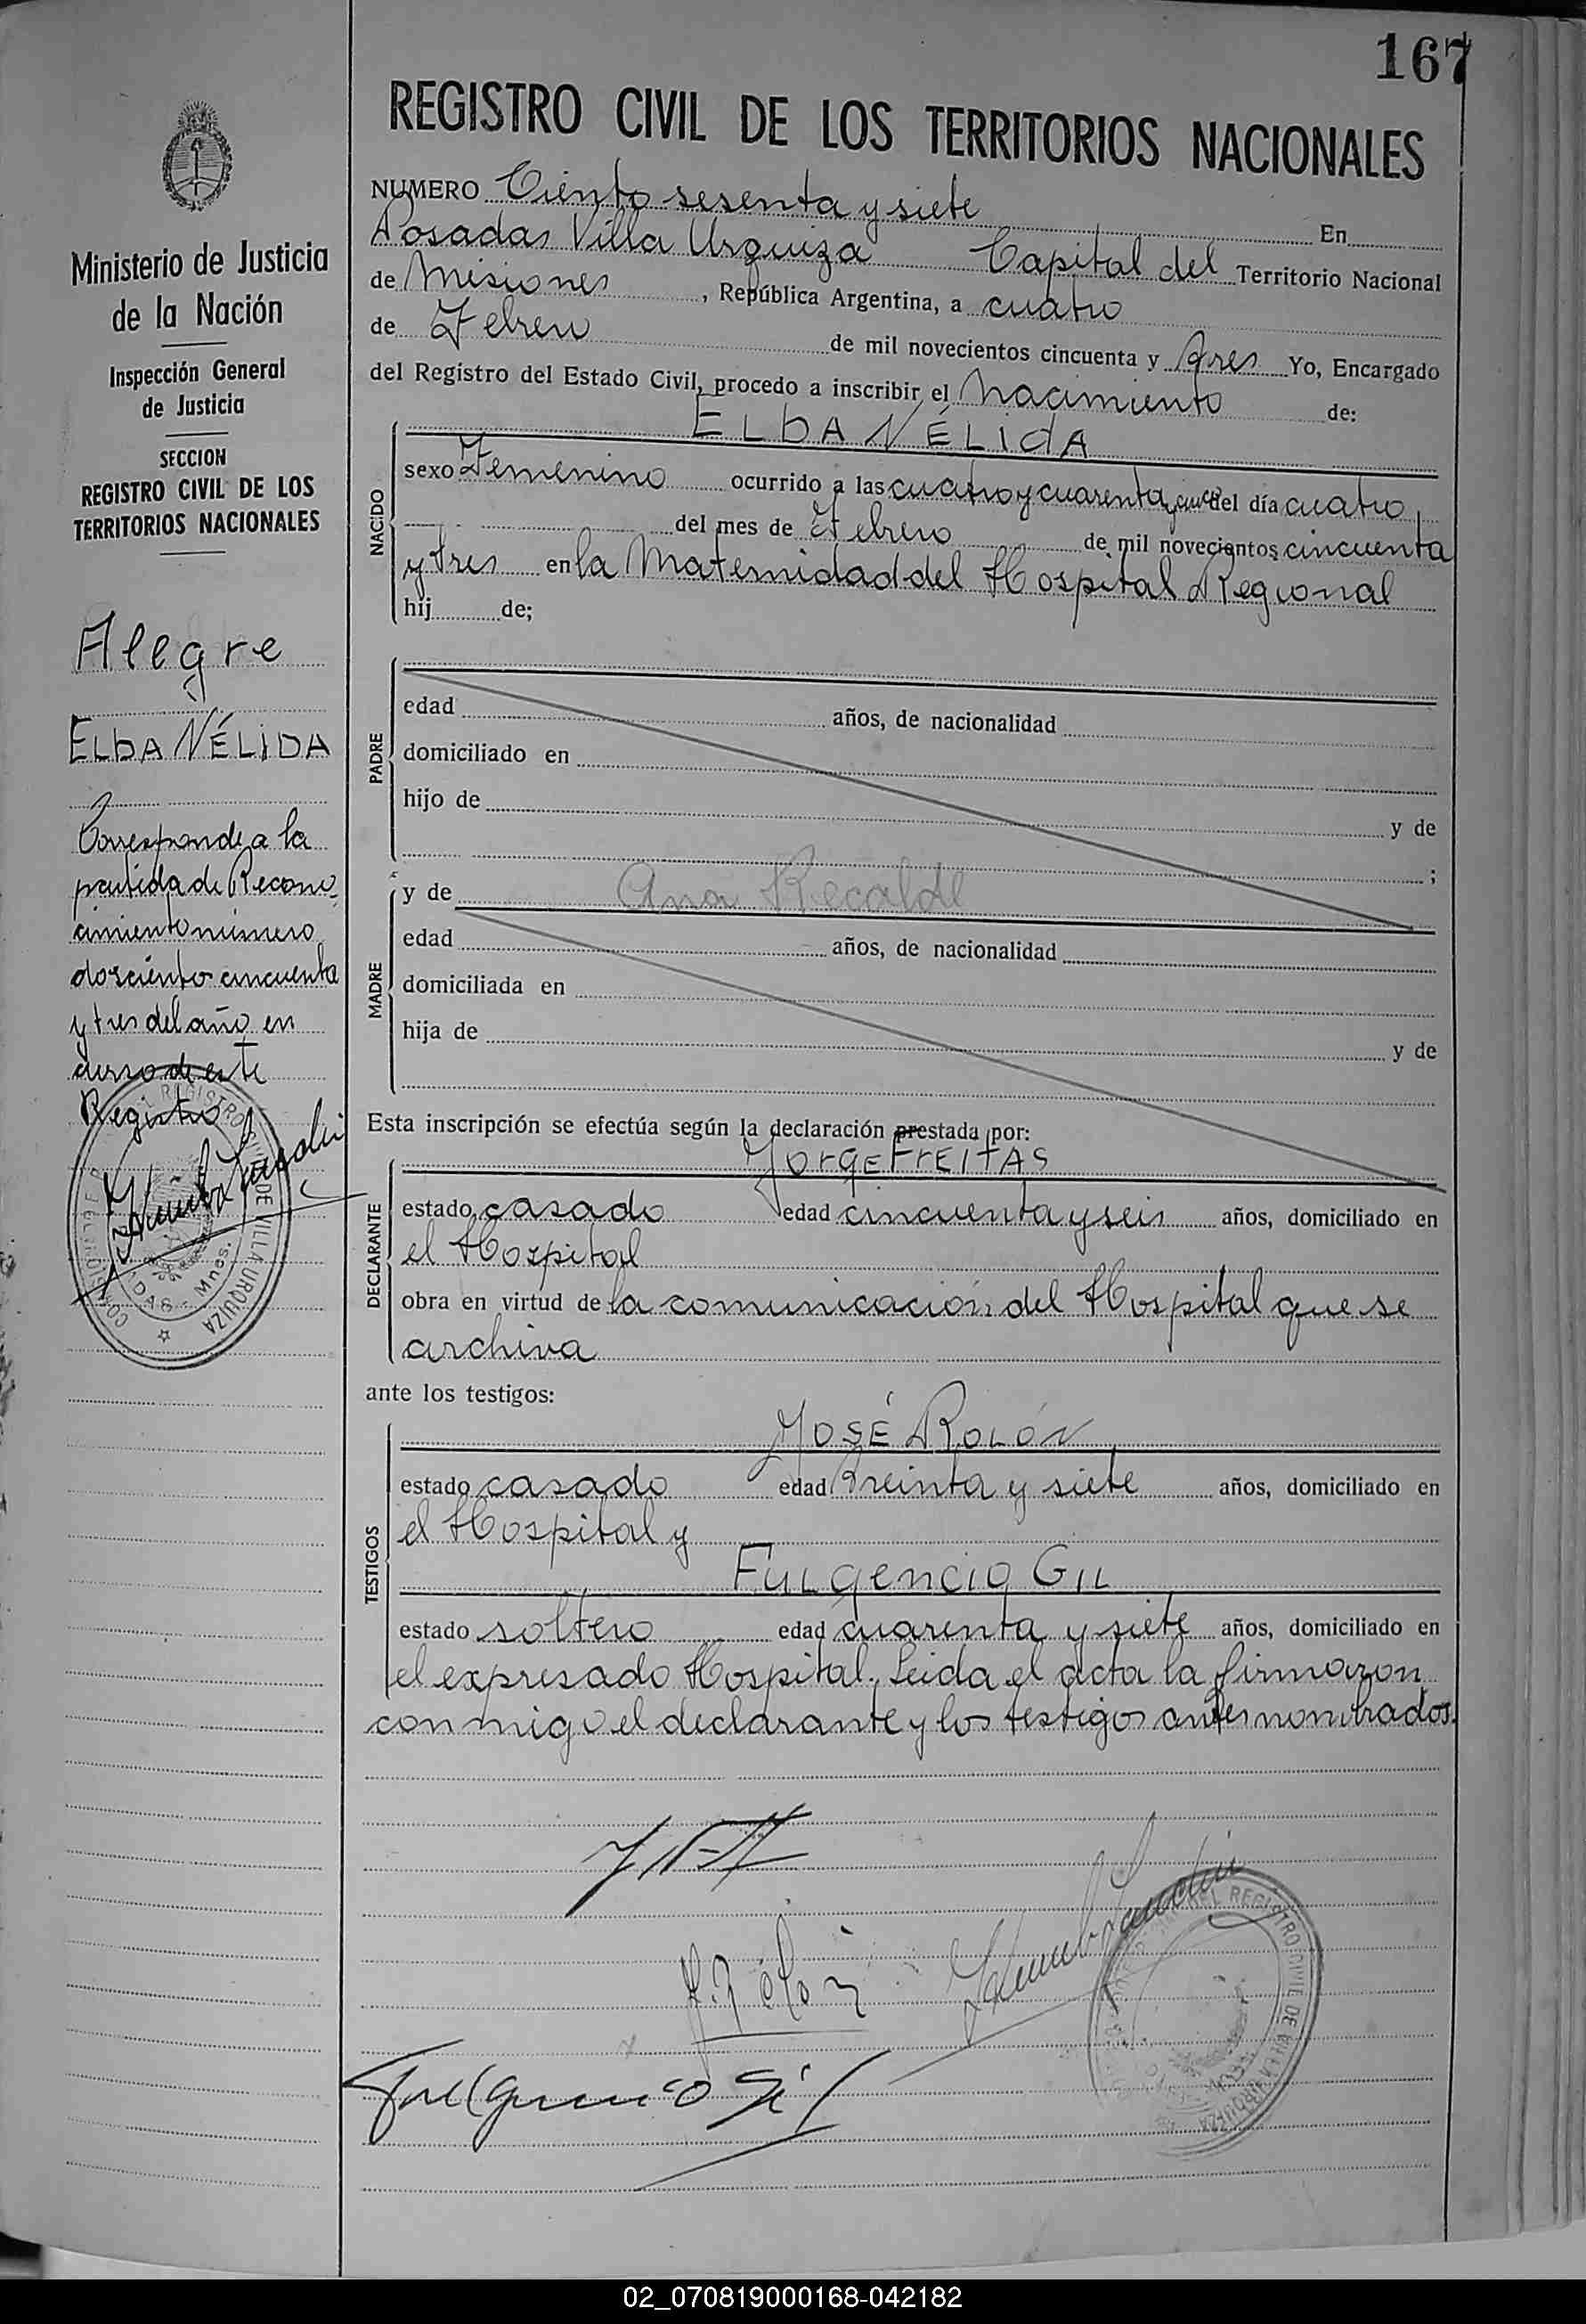 167
REGISTRO CIVIL DE LOS TERRITORIOS NACIONALES
Ministerio de Justicia
de la Nación
Inspección General
de Justicia
SECCION
REGISTRO CIVIL DE LOS
TERRITORIOS NACIONALES
Alegre
ELbA NÉLIDA
Corresponde a la
partida de Recono-
cimiento número
dosciento cincuenta
y tres del año en
curso de este
Registro
NUMERO Ciento sesenta y siete En
Posadas Villa Urquiza Capital del Territorio Nacional
de Misiones, República Argentina, a cuatro
de Febrero de mil novecientos cincuenta y tres Yo, Encargado
del Registro del Estado Civil, procedo a inscribir el Nacimiento de:
NACIDO
ELbA NÉLidA
sexo Femenino ocurrido a las cuatro y cuarenta del día cuatro
del mes de Febrero de mil novecientos cincuenta
y tres en la Maternidad del Hospital Regional
hij de;
PADRE
edad años, de nacionalidad
domiciliado en
hijo de y de
;
MADRE
y de Ana Recalde
edad años, de nacionalidad
domiciliada en
hija de y de
Esta inscripción se efectúa según la declaración prestada por:
DECLARANTE
JorgE FrEItAS
estado casado edad cincuenta y seis años, domiciliado en
el Hospital
obra en virtud de la comunicación del Hospital que se
archiva
ante los testigos:
TESTIGOS
JOSÉ ROLÓN
estado casado edad treinta y siete años, domiciliado en
el Hospital y
FuLgencio GIL
estado soltero edad cuarenta y siete años, domiciliado en
el expresado Hospital. Leida el acta la firmaron
conmigo el declarante y los testigos antes nombrados.
Fulgencio Gil
REGISTRO CIVIL DE VILLA URQUIZA
02_070819000168-042182